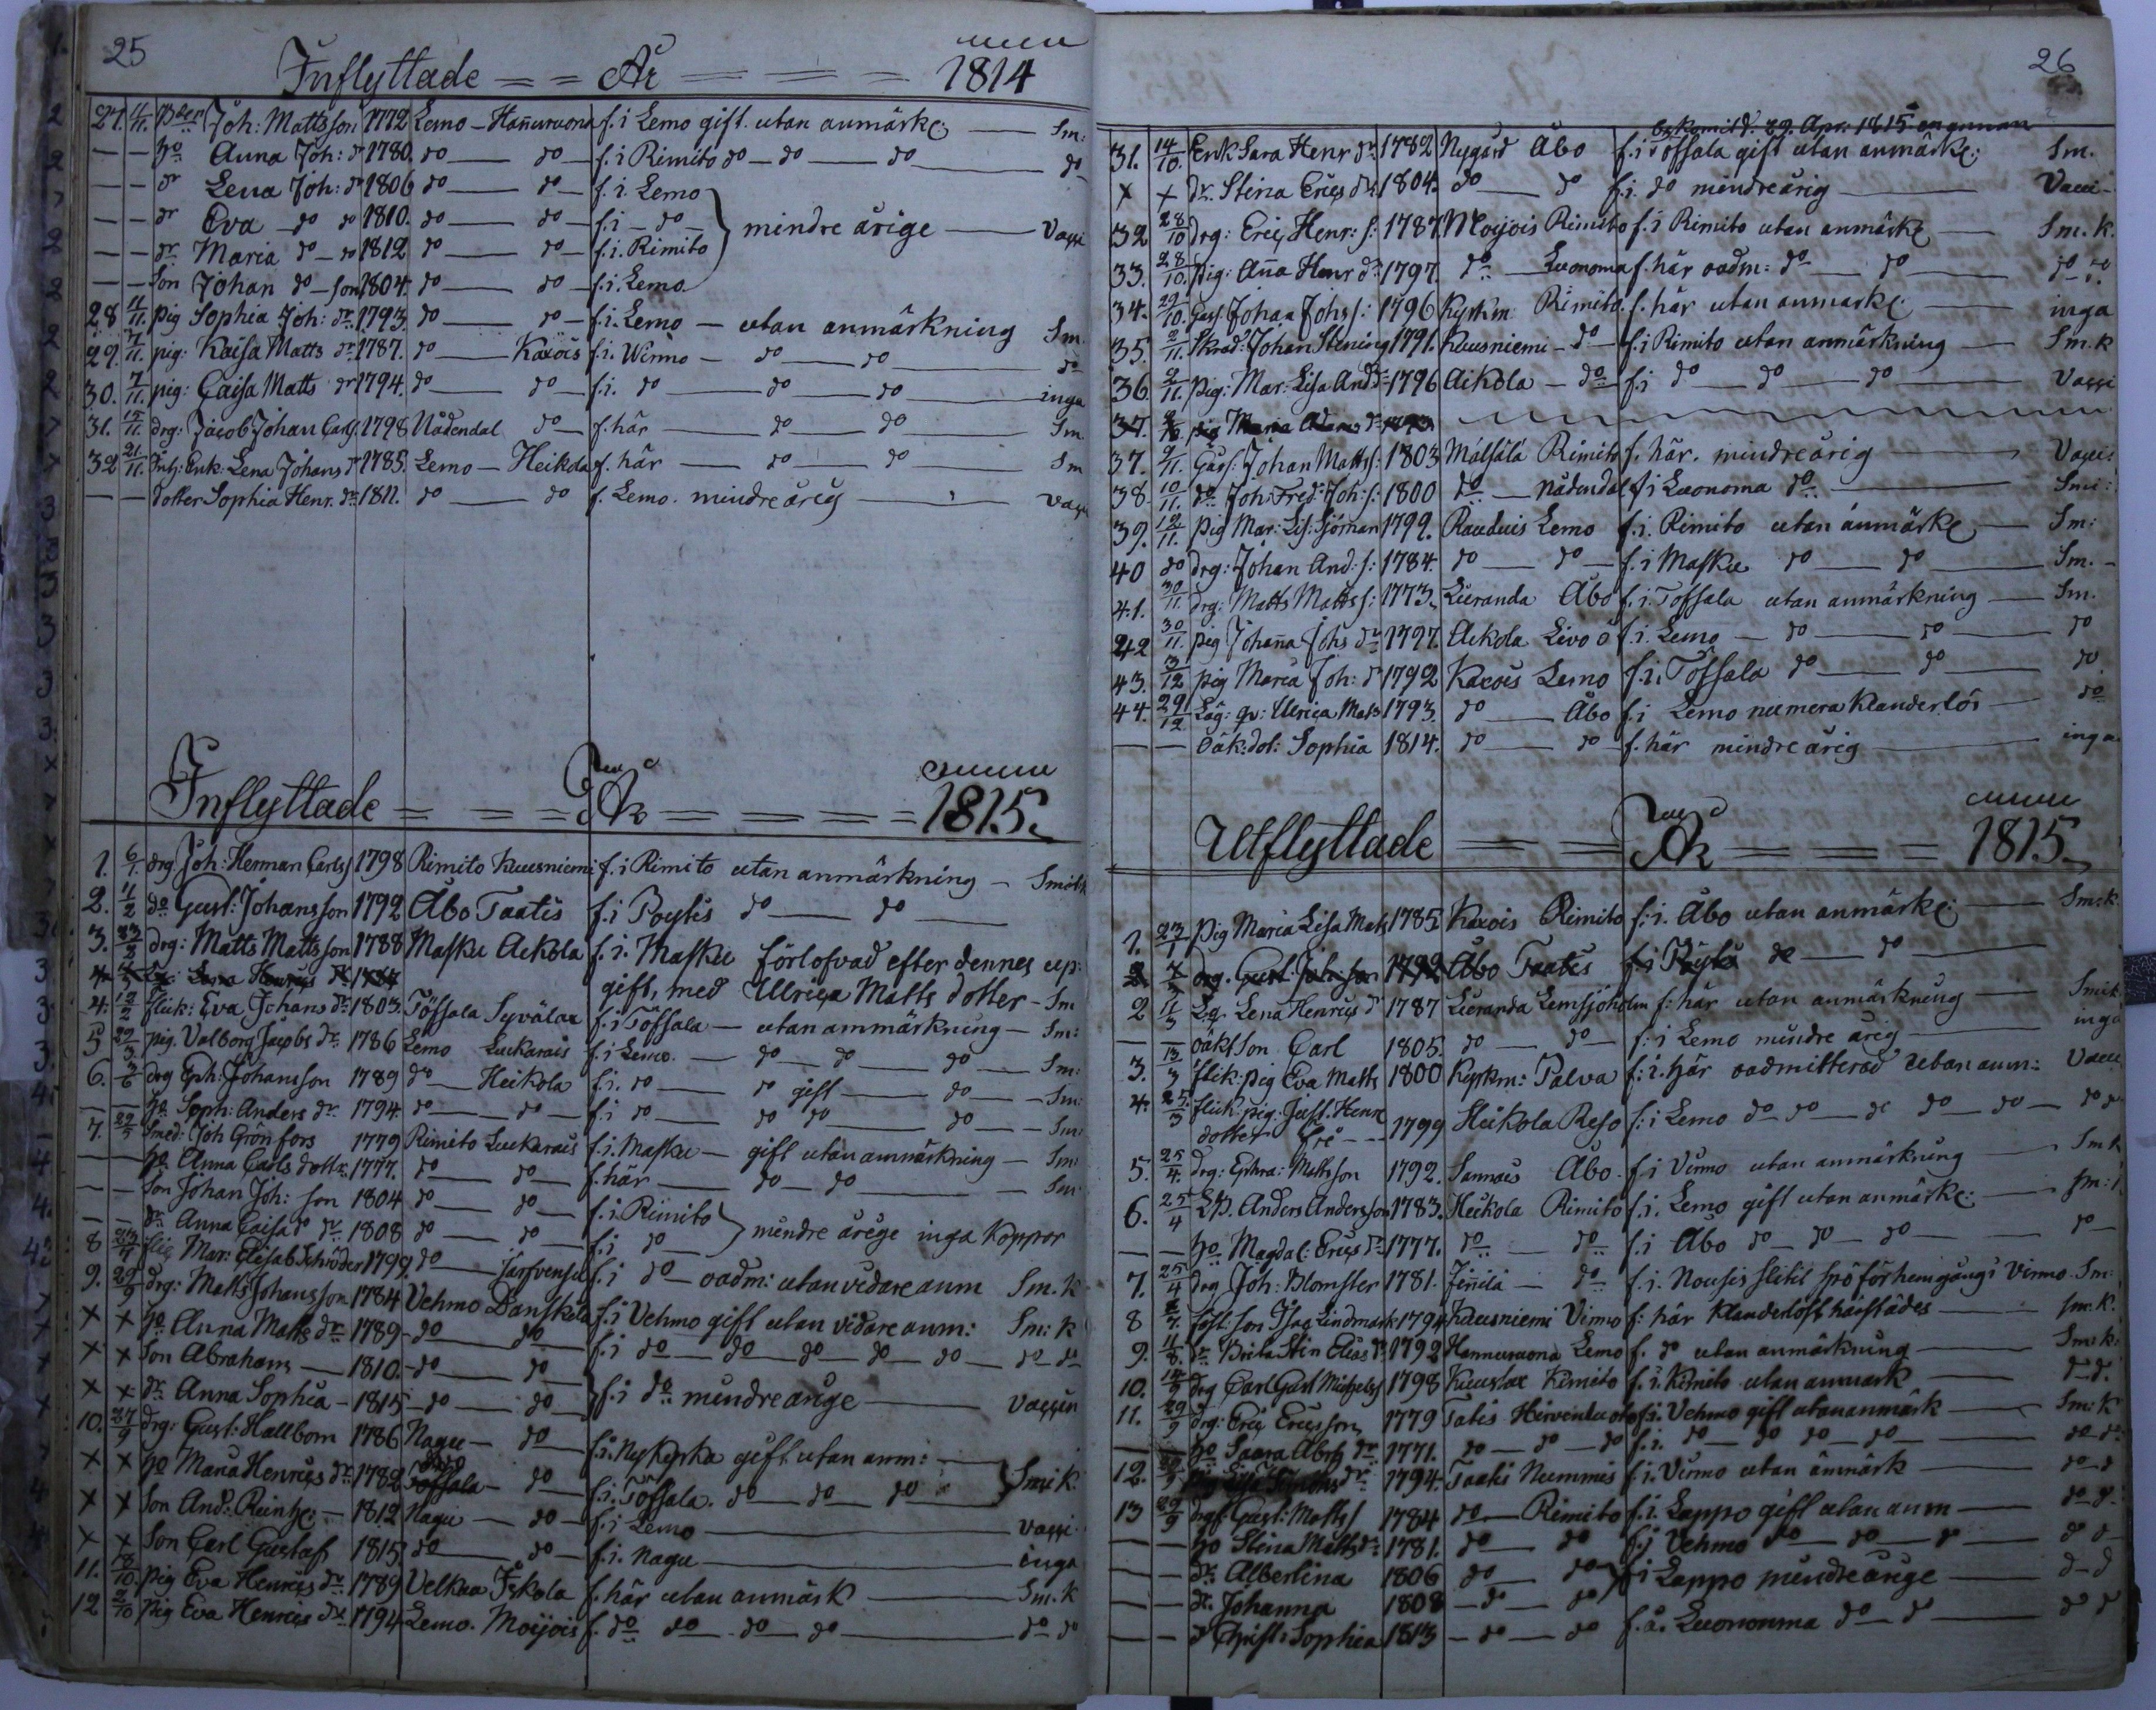 25
Inflyttade = = År = = = 1814
27. 4/11. Joh: Mattsson 1772 Lemo - Hannuruona f. i Lemo gift utan anmärk: Sm:
— — ho Anna Joh: dr 1780. do — do — f. i Rimito do — do — do do
— — dr Lena Joh: dr 1806 do — do — f. i. Lemo
— — dr Eva — do do 1810. do — do — f. i — do — mindre årige — Vacci
— — dr Maria do — do 1812 do — do — f. i. Rimito
— — Son Johan do — son 1804. do — do — f. i. Lemo
28 4/11. pig Sophia Joh: dr. 1793. do — do — f. i. Lemo — utan anmärkning Sm.
29. 7/11. pig: Kaisa Matts dr. 1787. do — Kaxois f. i. Wirmo — do — do — do
30. 7/11. pig: Caisa Matts dr 1794. do — do — f. i. do — do — do — inga
31. 15/11. drg: Jacob Johan Carls. 1798 Nådendal do — f. här — do — do — Sm.
32 21/11. Inh: Enk: Lena Johans dr 1785. Lemo — Heikola f. här — do — do — Sm
— — dotter Sophia Henr. dr. 1811. do — do f. Lemo. mindre årig — Vacci
Inflyttade = = = År = = = = 1815.
1. 6/1. drg. Joh: Herman Carlss 1798 Rimito Kuusniemi f. i Rimito utan anmärkning — Sm. k
2. 11/2 do Gust: Johansson 1792 Åbo Taatis f. i Poytis do — do —
3. 23/2 drg: Matts Mattsson 1788 Masku Aekola f. i. Masku förlofvad efter dennes up:
gift, med Ulrica Matts dotter — Sm
4. 12/2 flick: Eva Johans dr. 1803. Töfsala Syvälax f. i Töfsala — utan anmärkning — Sm:
5 22/3 pig. Valborg Jacobs dr. 1786 Lemo Luckarais f. i Lemo. — do — do — do — Sm:
6. 3/6 drg Eph: Johansson 1789 do — Heikola f. i. do — do gift — do — Sm:
— — ho. Soph: Anders dr. 1794. do — do — f. i do — do do — do — Sm:
7. 29/5 Smed: Joh Grönfors 1779 Rimito Luckarais f. i. Masku — gift utan anmärkning — Sm:
— — ho. Anna Carls dottr. 1777. do — do — f. här — do — do — Sm:
— — Son Johan Joh: son 1804 do — do — f. i. Rimito
— — dr. Anna Caisa do dr. 1808 do — do — f. i do — mindre årige inga Koppor
8 Mar: Elisab Schröder 1799. do — Järfvensu f. i do — oadm: utan vidare anm Sm. k
9. 29/9 drg: Matts Johansson 1784 Vehmo Danskila f. i Vehmo gift utan vidare anm: Sm: k
x x ho Anna Matts dr. 1789 — do — do — f. i do — do — do — do — do — do do
x x Son Abraham — 1810. — do — do —
x x dr. Anna Sophia — 1815 — do — do — f. i do. mindre årige — Vaccin
10. 27/9 drg: Gust: Hallbom 1786 Nagu — do — f. i. Nykyrka gift utan anm: —
x x ho Maria Henrics dr. 1782 Töfsala — do — f. i. Töfsala. do — do — do Sm. k.
x x Son And: Reinh: — 1812 Nagu — do — f. i Lemo — Vacci.
x x Son Carl Gustaf 1815 do — do — f. i. Nagu — inga
11. 18/10. Pig Eva Henrics dr. 1789 Velkua Iskola f. här utan anmärk — Sm. k
12 2/10 Pig Eva Henrics dr. 1794 Lemo. Moijois f. do. do — do — do — do do
26
bekomit d. 29. Apr. 1815
31. 14/10. Enk Sara Henr dr. 1782 Nygård Åbo f. i Töfsala gift utan anmärk: Sm.
x x dr. Stina Erics dr. 1804. do — do f. i. do mindre årig — Vacci
32 28/10 drg: Eric Henr: s: 1787. Moijois Rimito f. i Rimito utan anmärk — Sm. k.
33. 28/10. Pig: Anna Henr dr. 1797. do. — Luonoma f. här oadm: do — do — do do
34. 29/10. Gås. Johan Johs s: 1796 Kyrkm: Rimito. f. här utan anmärk: — inga
35. 2/11. Skrad: Johan Stening 1791. Kuusniemi — do — f. i Rimito utan anmärkning — Sm. k
36. 2/11. Pig: Mar: Lisa And dr. 1796 Aikola — do — f. i do — do — do — Vacci
37. 9/11. Gås. Johan Matts s: 1803 Målsälä Rimito f. här. mindre årig — Vacci
38. 10/11. do Joh: Fred: Joh: s: 1800 do — Nådendal f. i Luonoma do. — Sm:
39. 12/11. Pig Mar: Lis: Sjöman 1799. Rauduis Lemo f. i. Rimito utan anmärk — Sm:
40 do drg: Johan And: s: 1784. do — do — f. i Masku do — do — Sm. —
41. 30/11. drg: Matts Matts s: 1773. Luranda Åbo f. i. Töfsala utan anmärkning — Sm.
42 30/11. Pig Johanna Johs dr. 1797. Aekola Livo ö f. i. Lemo — do — do — do
43. 3/12 Pig Maria Joh: dr 1792 Kaxois Lemo f. i. Töfsala do — do — do.
44. 29/12 Läg: qv: Ulrica Matts 1793. do — Åbo f. i Lemo numera klanderlös — do
— — Oäk: dot: Sophia 1814. do — do — f. här mindre årig — inga
Utflyttade = = År = = = 1815.
1. 23/1 Pig Maria Lisa Matts 1785. Kaxois Rimito f: i. Åbo utan anmärk: — Sm: k.
2 drg. Gust. Johansson 1792 Åbo Taatis f. i Pöytis do — do —
2 11/3 L. q. Lena Henrics d 1787 Luranda Lemsjöholm f: här utan anmärkning — Sm: k
— — oäkt Son Carl 1805. do — do — f: i Lemo mindre årig — inga
3. 13/3 flik: pig Eva Matts 1800 Kyrkm: Palva f: i. här oadmitterad utan anm: Vacci
4. 25/3 flick: pig: Just. Henr
dotter 1799 Heikola Reso f: i Lemo do do — do do — do — do do
5. 25/4. drg: Ephra: Mattsson 1792. Sannais Åbo. f. i Virmo utan anmärkning — Sm k
6. 25/4 Anders Andersson 1783. Heikola Rimito f. i. Lemo gift utan anmärk: — Sm: k
— — ho. Magdal: Erics dr. 1777. do. — do. f. i Åbo do — do — do — do —
7. 25/4 drg Joh: Blomster 1781. Jennilä — do. f. i. Nousis Virmo. Sm:
8 Isac Lindmark 1794 Kuusniemi Virmo f: här klanderlöst — Sm: k.
9. 11/8. dr Brita Stin Elias dr. 1792 Hannuruona Lemo f. do utan anmärkning — Sm: k:
10. 14/9 drg Carl Gust Michels 1798 Kuustax Kimito f. i. Kimito utan anmärk — do do.
11. 29/9 drg: Eric Ericsson 1779 Tatis Hirvenluoto f. i. Vehmo gift utan anmärk — Sm: k
— — ho Saara Abrh dr 1771. do — do — do f. i. do — do do — do — do do
12. 29/9 dr. 1794. Taatis Nummis f. i. Virmo utan anmärk — do do
13 29/9 drg: Gust: Matts s 1784 do — Rimito f. i. Lappo gift utan anm — do do.
— — ho Stina Matts dr. 1781. do — do f. i Vehmo do — do — do — do do
— — dr. Albertina 1806 do — do f. i Lappo mindre årige — do do
— — dr. Johanna 1808 — do — do
— — d Christ: Sophia 1813 — do — do f. å. Luononma do — do — do do